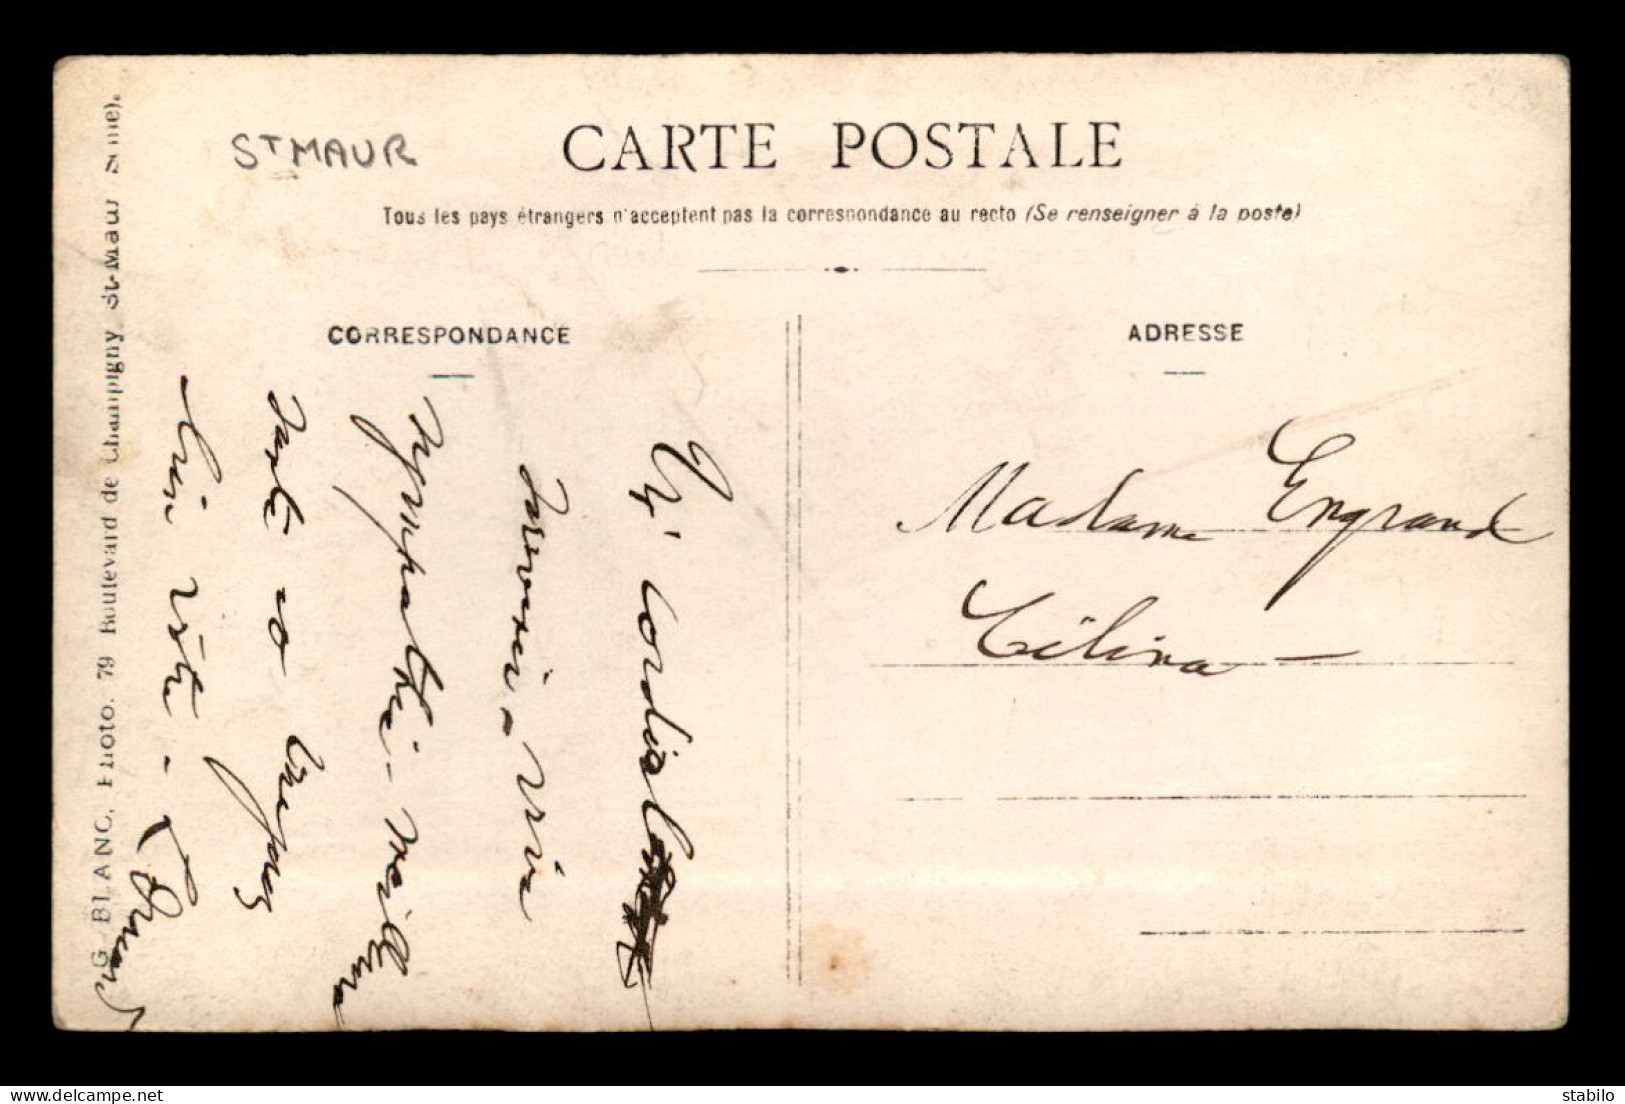 ST MAUR
CARTE POSTALE
Tous les pays étrangers n'acceptent pas la correspondance au recto (Se renseigner à la poste)
CORRESPONDANCE
ADRESSE
G. BLANC, Photo. 79 Boulevard de Champigny St-Maur Seine).
cordial
souvenir - vive
sympathie - meilleure
santé
bien vôtre -
Madame Engrand
Célina -
delcampe.net
stabilo